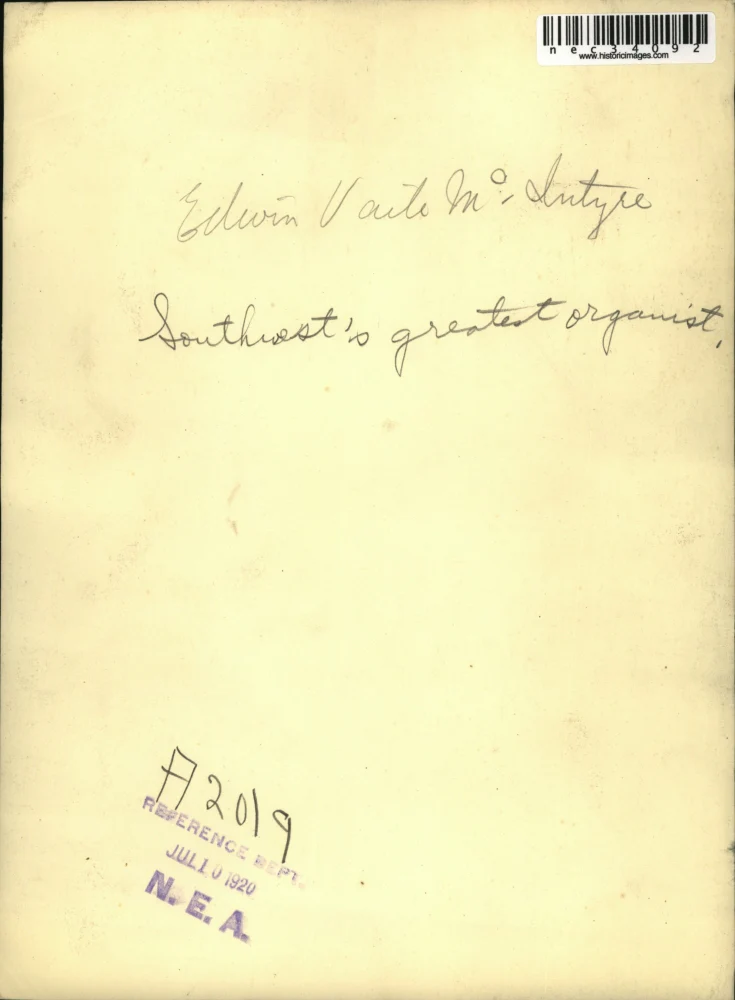 nec34092
www.historicimages.com
Edwin Vaile Mc-Intyre
Southwest's greatest organist,
A2019
REFERENCE DEPT.
JUL 10 1920
N. E. A.